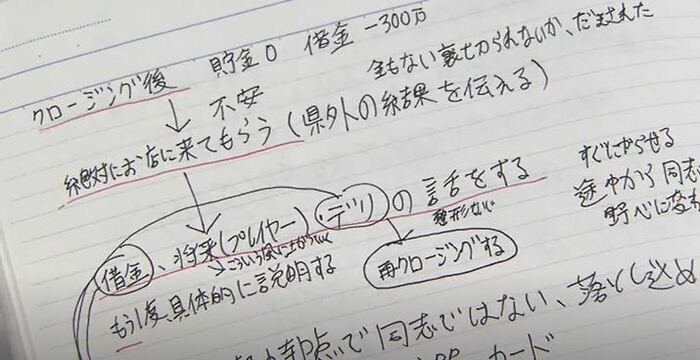 クロージング後 貯金0 借金-300万
不安 金もない裏切られないか、だまされた
絶対にお店に来てもらう(県外の結果を伝える)
借金、将来(プレイヤー)・デリの話をする
整形ない
もう1度、具体的に説明する
再クロージングする
すぐにからせる
途中から同志
野心に変
時点で同志ではない、落とし込め
カード